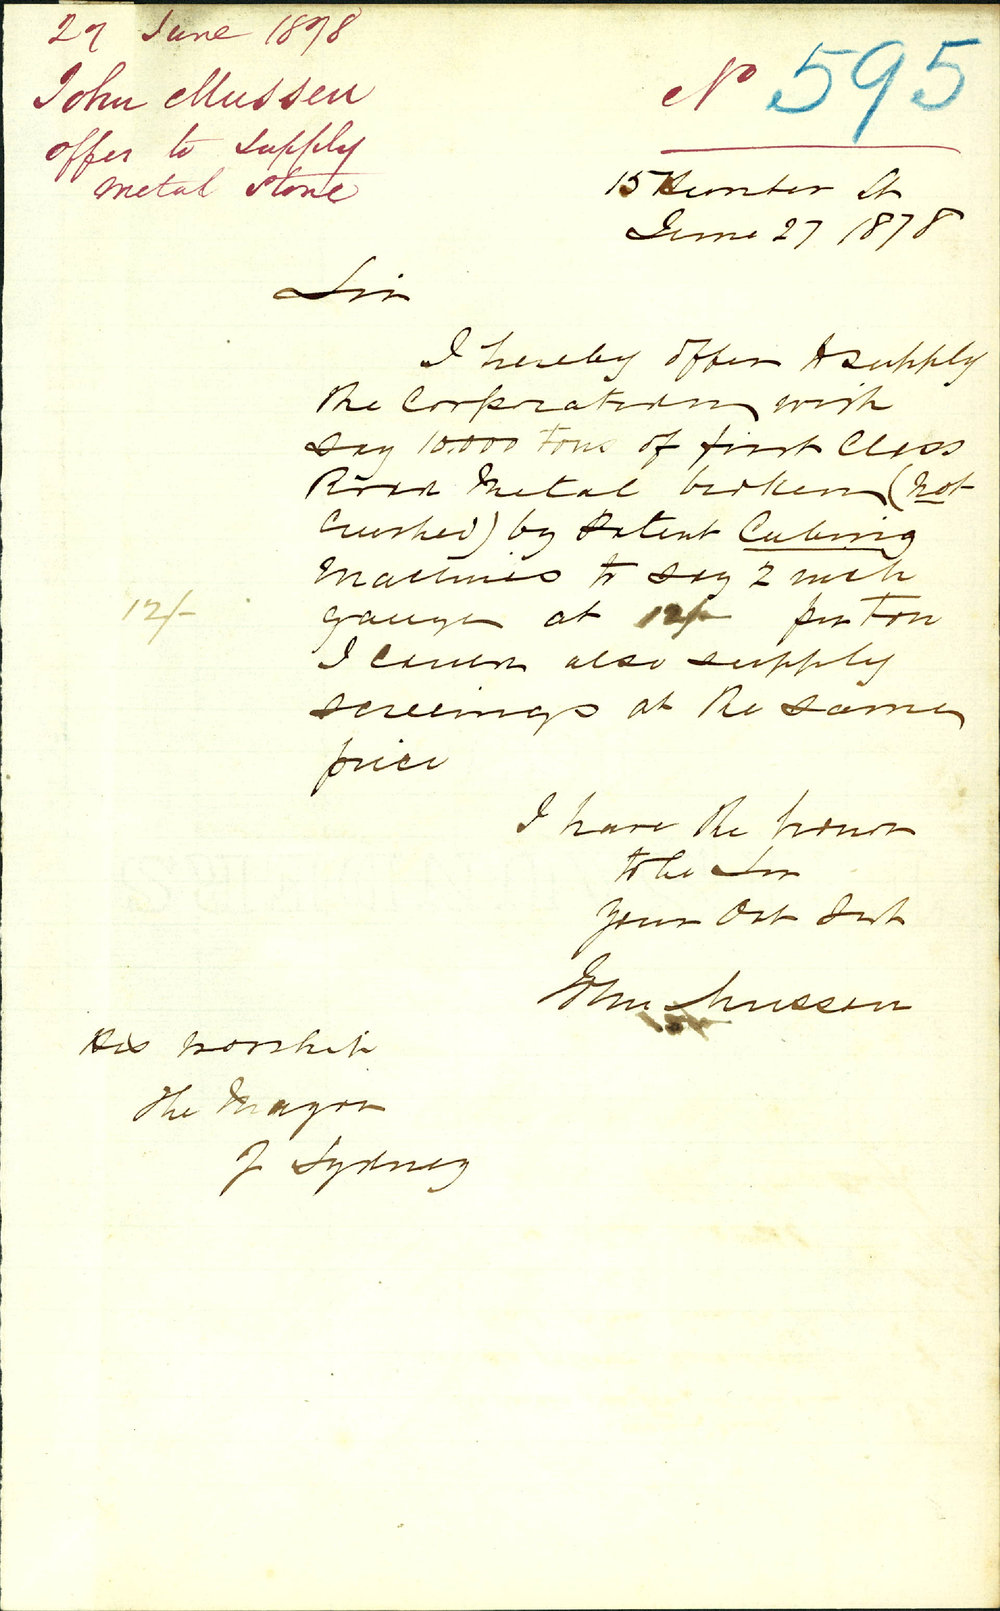 27 June 1878
John Mussen
offer to supply
metal stone
No 595
15 Hunter St
June 27 1878
Sir
I hereby offer to supply
the Corporation with
say 10.000 tons of first Class
Road Metal broken (not
crushed) by Patent Cubing
Machines to say 2 inch
gauge at 12/- per ton
12/-
I could also supply
screenings at the same
price
I have the honor
to be Sir
your Obt Svt
John Mussen
His Worship
The Mayor
of Sydney